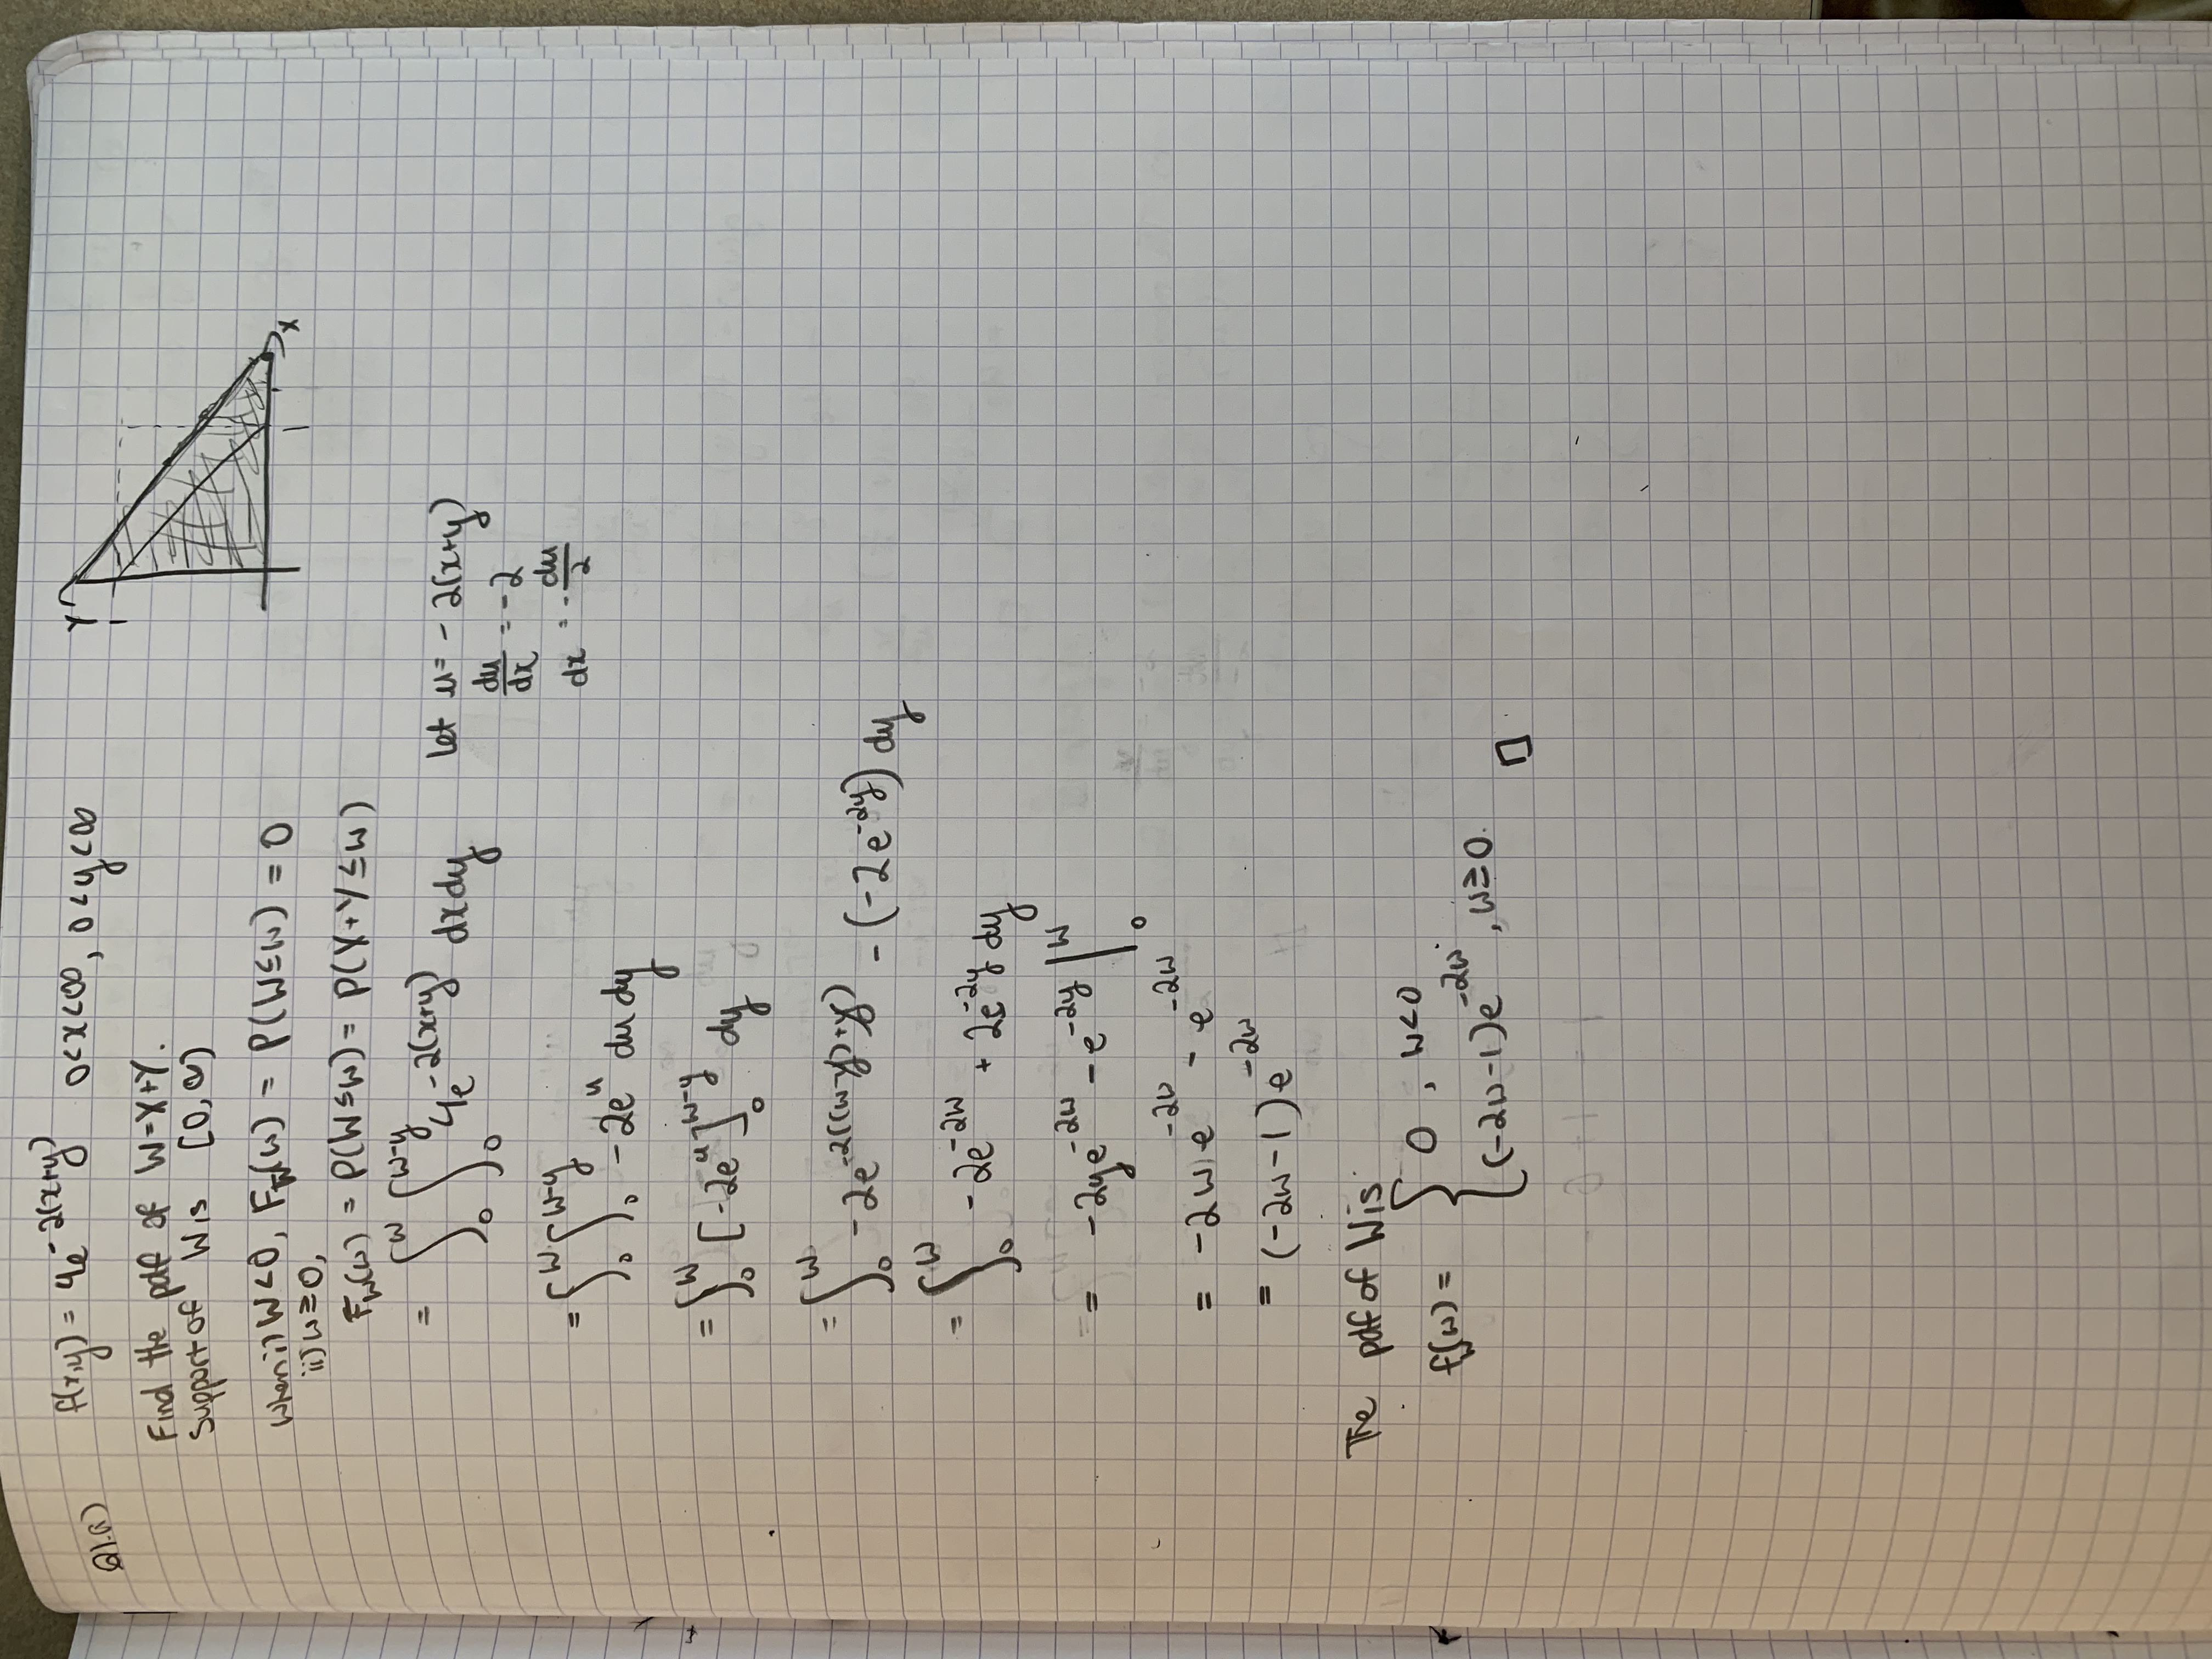 Q1.a)
f(x,y) = 4e^{-2(x+y)} 0<x<∞, 0<y<∞
Find the pdf of W=X+Y.
Support of W is [0,∞)
When i) W<0, F_W(w) = P(W≤w) = 0
ii) w≥0,
F_W(w) = P(W≤w) = P(X+Y≤w)
= ∫_0^w ∫_0^{w-y} 4e^{-2(x+y)} dxdy
= ∫_0^w ∫_0^{w-y} -2e^u du dy
= ∫_0^w [-2e^u]_0^{w-y} dy
= ∫_0^w -2e^{-2((w-y)+y)} - (-2e^{-2y}) dy
= ∫_0^w -2e^{-2w} + 2e^{-2y} dy
= -2ye^{-2w} - e^{-2y} |_0^w
= -2we^{-2w} - e^{-2w}
= (-2w-1)e^{-2w}
The pdf of W is
f_W(w) = { 0, w<0
(-2w-1)e^{-2w}, w≥0.
□
Let u = -2(x+y)
du/dx = -2
dx = -du/2
Y
1
1
X